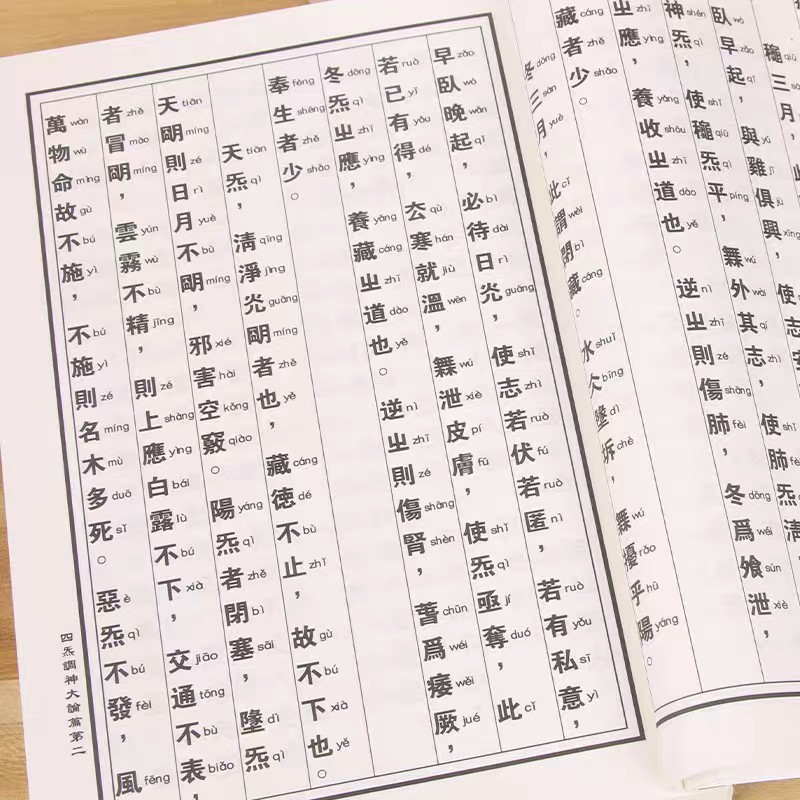 穐qiū三sān月yuè，
臥wò早zǎo起qǐ，與yǔ雞jī俱jù興xīng，使志安
神shén炁qì，使shǐ穐qiū炁qì平píng，橆wú外wài其qí志zhì，使shǐ肺fèi炁qì清
㞢zhī應yìng，養yǎng收shōu㞢zhī道dào也yě。逆nì㞢zhī則zé傷shāng肺fèi，冬dōng爲wéi飧sūn泄，
藏cáng者zhě少shǎo。
冬dōng三sān月yuè，此cǐ謂wèi閉bì藏cáng。水shuǐ仌bīng墬dì坼chè，橆wú擾rǎo乎hū陽yáng。
早zǎo臥wò晚wǎn起qǐ，必bì待dài日rì灮guāng，使shǐ志zhì若ruò伏fú若ruò匿nì，若ruò有yǒu私sī意yì，
若ruò已yǐ有yǒu得dé，厺qù寒hán就jiù溫wēn，橆wú泄xiè皮pí膚fū，使shǐ炁qì亟jí奪duó，此cǐ
冬dōng炁qì㞢zhī應yìng，養yǎng藏cáng㞢zhī道dào也yě。逆nì㞢zhī則zé傷shāng腎shèn，萅chūn爲wéi痿wěi厥jué，
奉fèng生shēng者zhě少shǎo。
天tiān炁qì，清qīng淨jìng灮guāng朙míng者zhě也yě，藏cáng德dé不bù止zhǐ，故gù不bú下xià也yě。
天tiān朙míng則zé日rì月yuè不bù朙míng，邪xié害hài空kǒng竅qiào。陽yáng炁qì者zhě閉bì塞sāi，墬dì炁qì
者zhě冒mào朙míng，雲yún霧wù不bù精jīng，則zé上shàng應yìng白bái露lù不bú下xià，交jiāo通tōng不bù表biǎo，
萬wàn物wù命mìng故gù不bú施yì，不bú施yì則zé名míng木mù多duō死sǐ。惡è炁qì不bú發fèi，風fēng
四炁調神大論篇第二